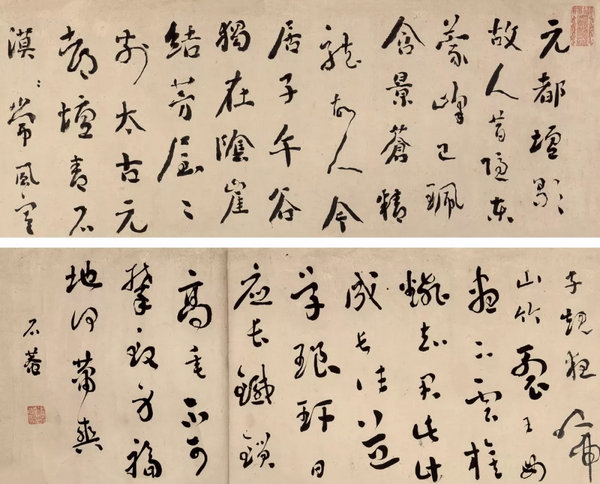 元都壇歌
故人昔隱東
蒙峰已珮
含景蒼精
龍故人今
居子午谷
獨在陰崖
結茅屋〻
前太古元
都壇青石
漠〻常風寒
子規夜啼
山竹裂王母
晝下雲旗
翻知君此計
成長往芝
草琅玕日
應長鐵鎖
高垂不可
攀致身福
地何蕭爽
石菴